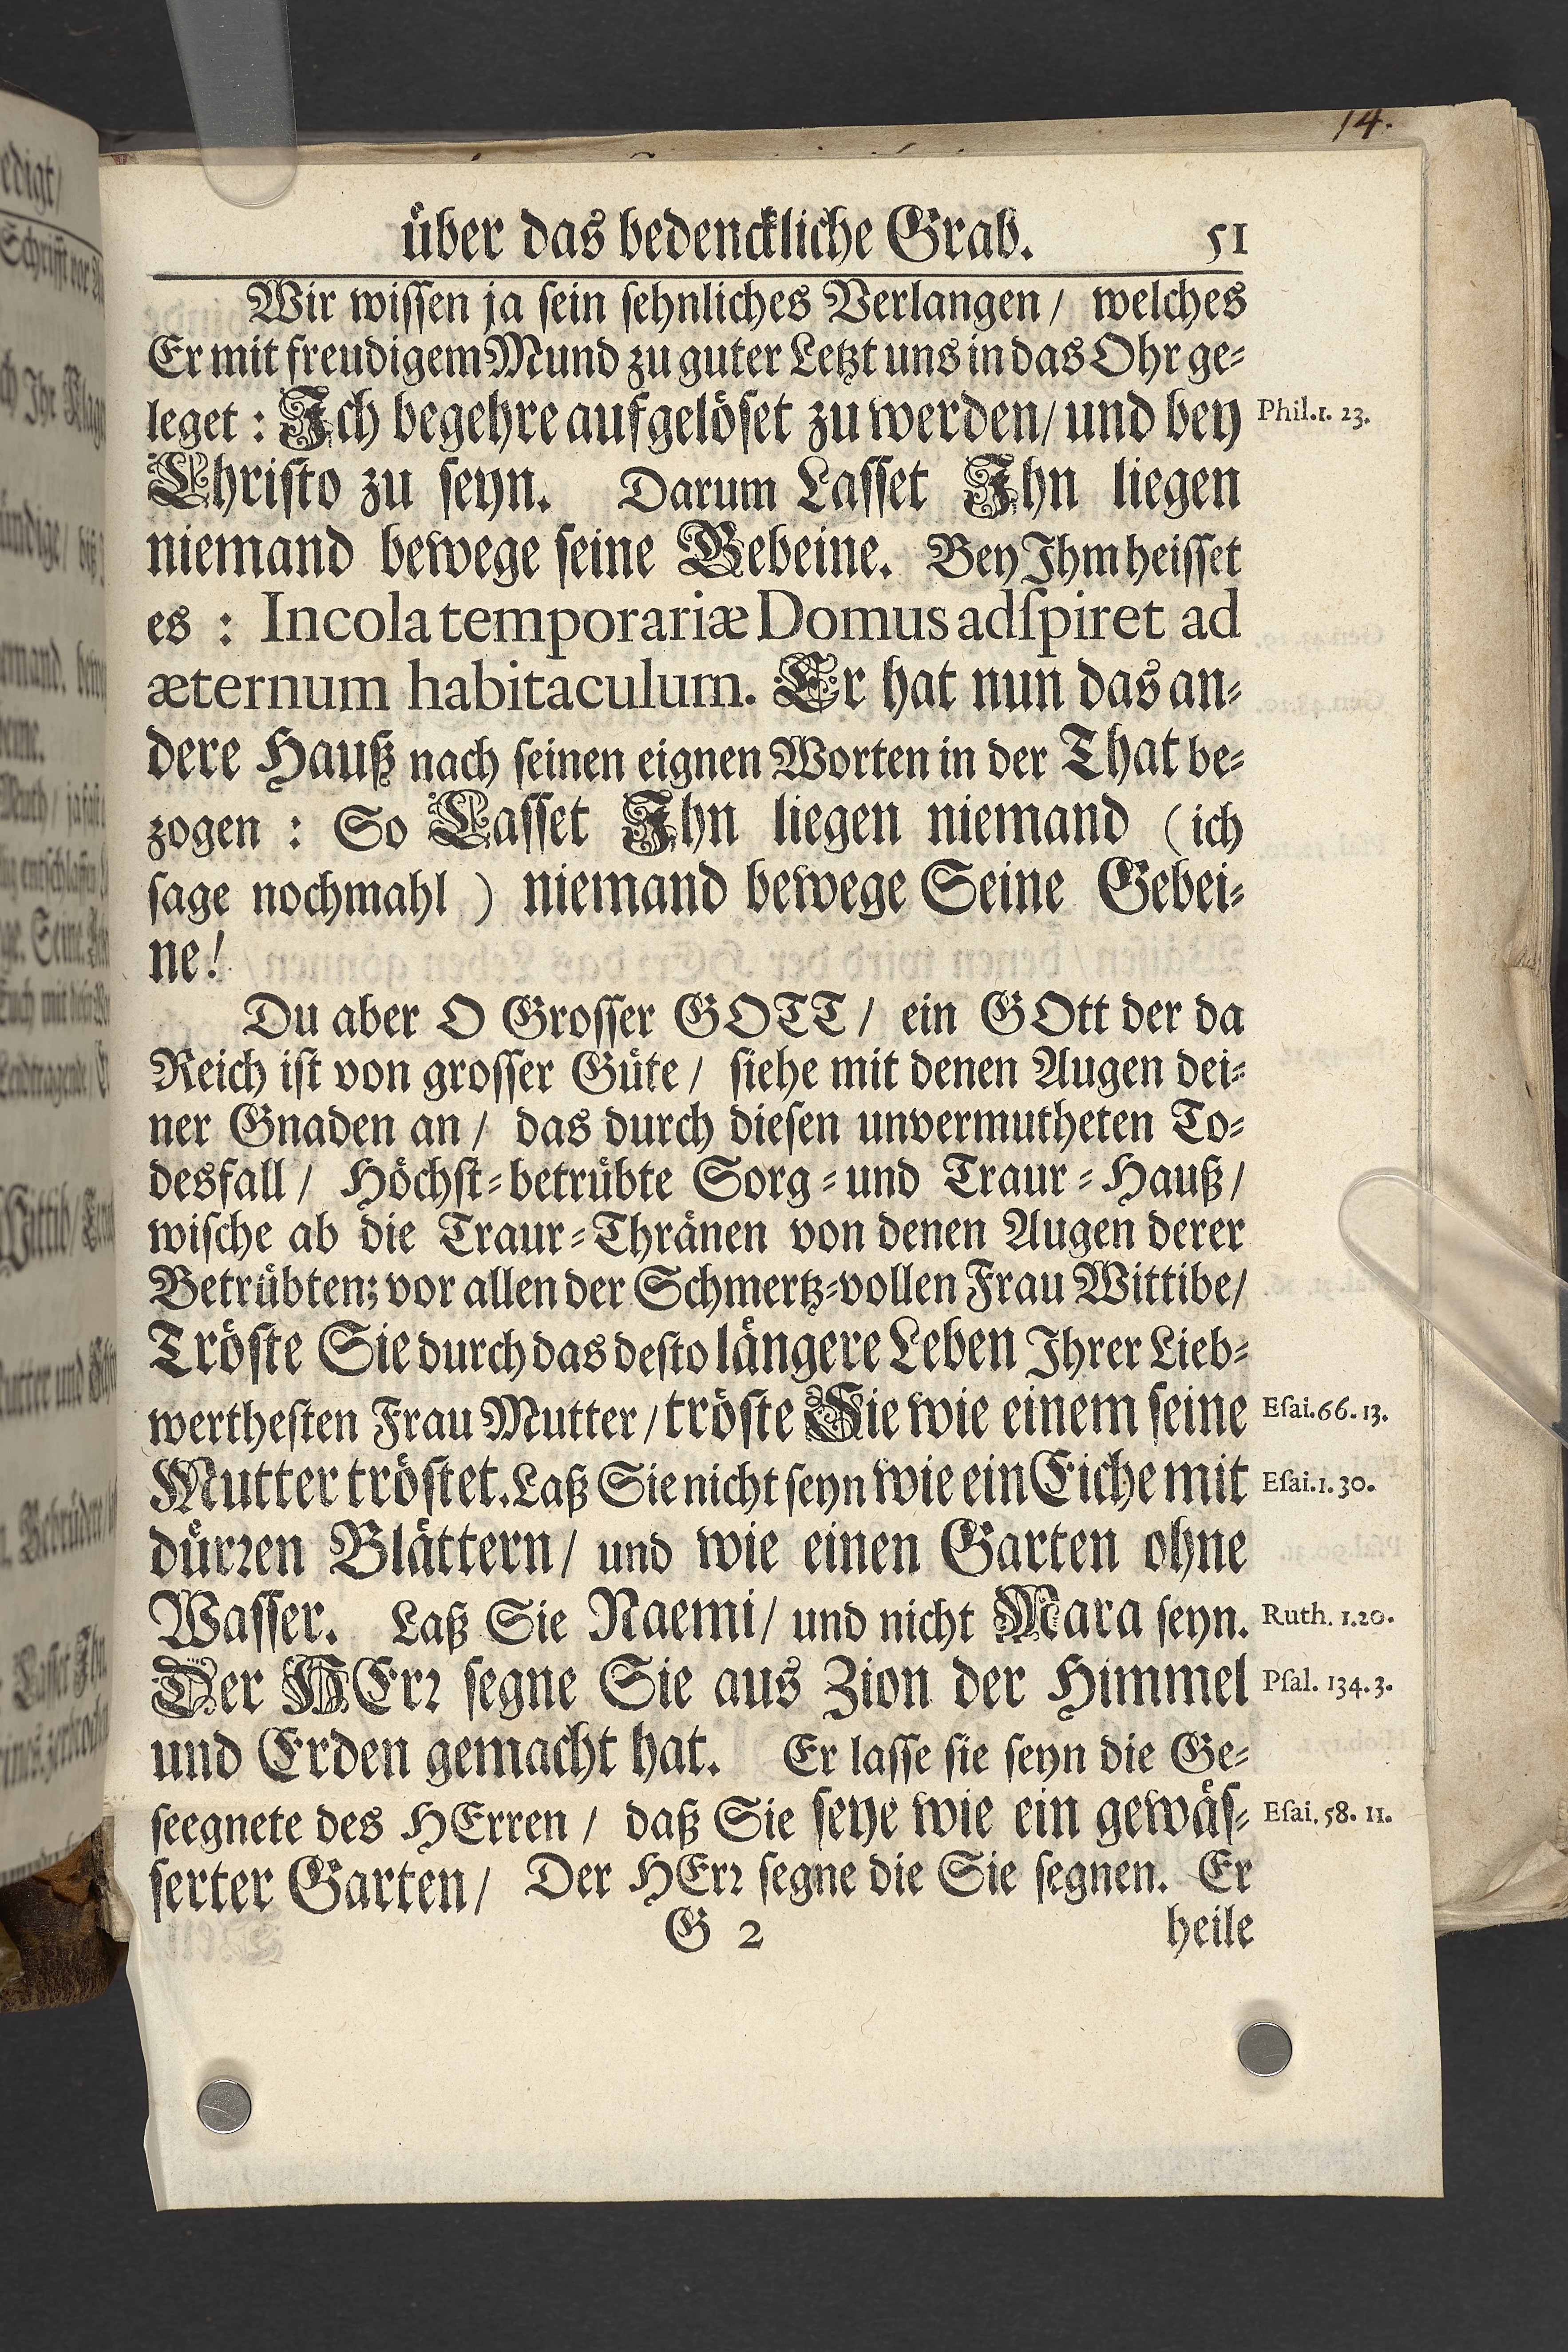 14.
über das bedenckliche Grab. 51
Wir wissen ja sein sehnliches Verlangen / welches
Er mit freudigem Mund zu guter Letzt uns in das Ohr ge-
leget : Ich begehre aufgelöset zu werden / und bey Phil. 1. 23.
Christo zu seyn. Darum Lasset Ihn liegen
niemand bewege seine Gebeine. Bey Ihm heisset
es : Incola temporariæ Domus adſpiret ad
æternum habitaculum. Er hat nun das an-
dere Hauß nach seinen eignen Worten in der That be-
zogen : So Lasset Ihn liegen niemand (ich
sage nochmahl ) niemand bewege Seine Gebei-
ne!
Du aber O Grosser GOTT / ein GOtt der da
Reich ist von grosser Güte / siehe mit denen Augen dei-
ner Gnaden an / das durch diesen unvermutheten To-
desfall / Höchst-betrübte Sorg-und Traur-Hauß /
wische ab die Traur-Thränen von denen Augen derer
Betrübten; vor allen der Schmertz-vollen Frau Wittibe /
Tröste Sie durch das desto längere Leben Ihrer Lieb-
werthesten Frau Mutter / tröste Sie wie einem seine Eſai. 66. 13.
Mutter tröstet. Laß Sie nicht seyn wie ein Eiche mit Eſai. 1. 30.
dürren Blättern / und wie einen Garten ohne
Wasser. Laß Sie Naemi / und nicht Mara seyn. Ruth. 1. 20.
Der HErr segne Sie aus Zion der Himmel Pſal. 134. 3.
und Erden gemacht hat. Er lasse sie seyn die Ge-
seegnete des HErren / daß Sie seye wie ein gewäs- Eſai. 58. 11.
serter Garten / Der HErr segne die Sie segnen. Er
G 2 heile